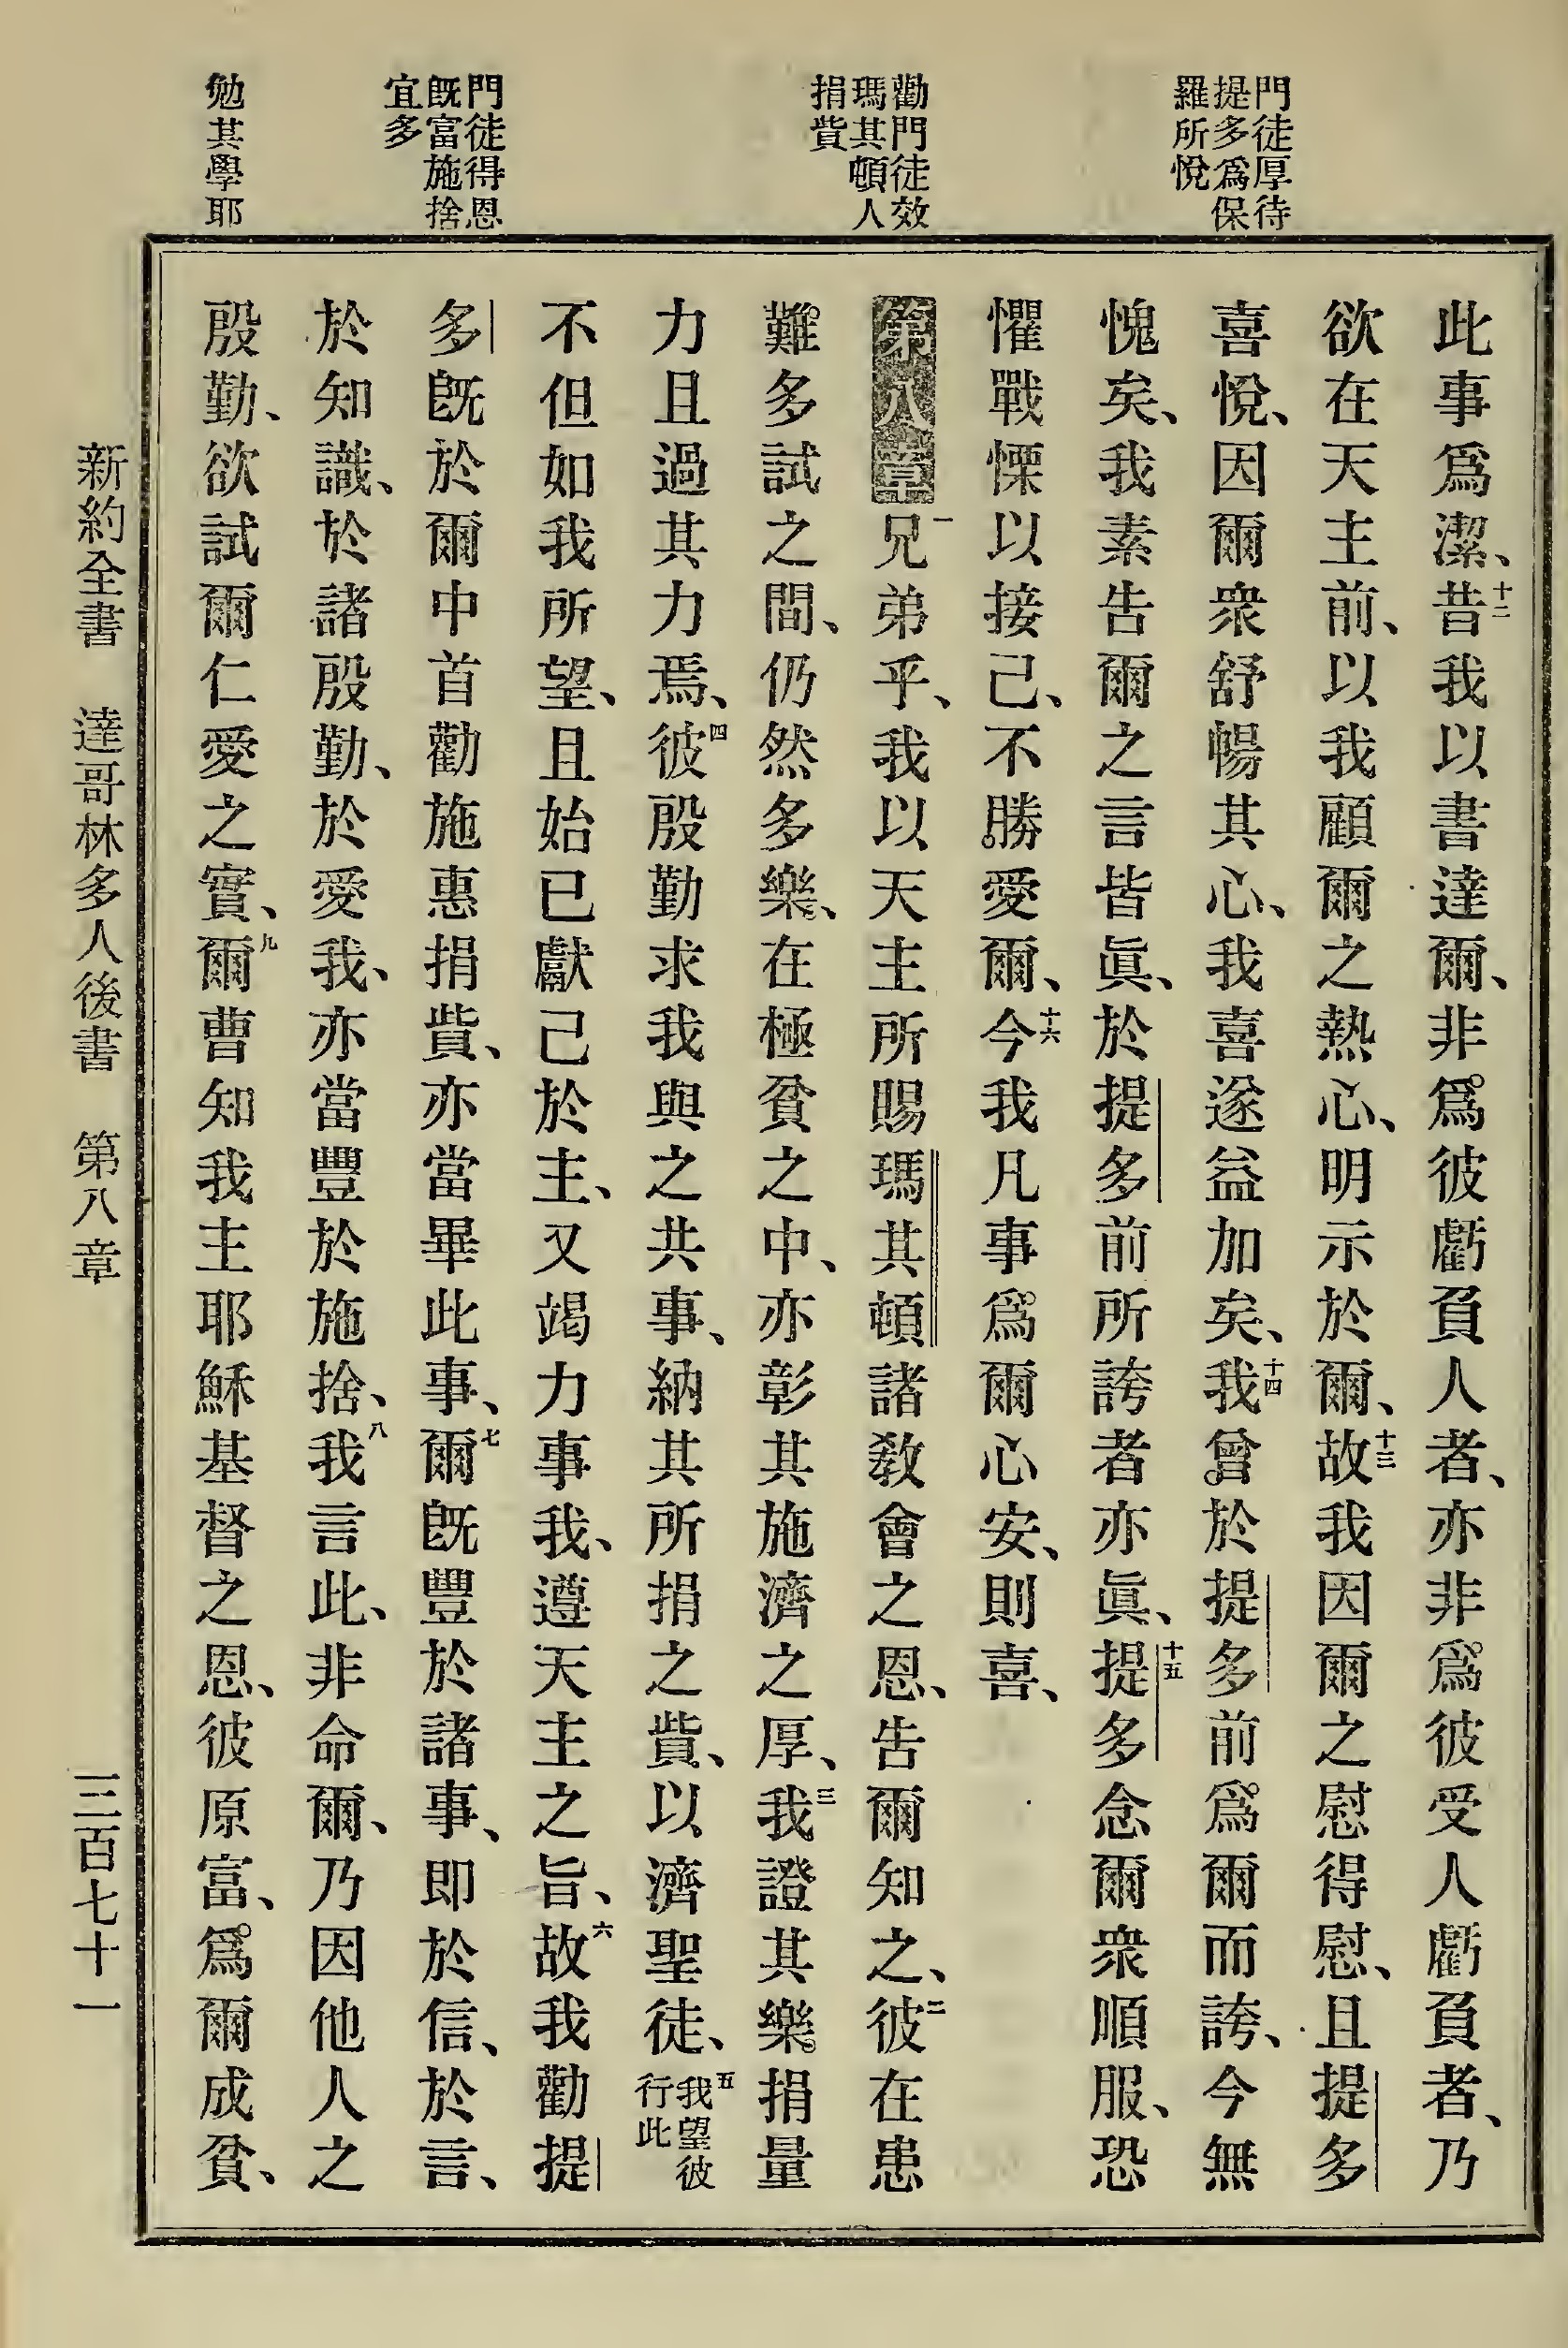 門徒厚待
提多爲保
羅所悅
勸門徒效
瑪其頓人
捐貲
門徒得恩
旣富施捨
宜多
勉其學耶
此事爲潔、十二昔我以書達爾、非爲彼虧負人者、亦非爲彼受人虧負者、乃
欲在天主前、以我顧爾之熱心、明示於爾、十三故我因爾之慰得慰、且提多
喜悅、因爾衆舒暢其心、我喜遂益加矣、十四我曾於提多前爲爾而誇、今無
愧矣、我素告爾之言皆眞、於提多前所誇者亦眞、十五提多念爾衆順服、恐
懼戰慄以接己、不勝愛爾、十六今我凡事爲爾心安、則喜、
第八章 一兄弟乎、我以天主所賜瑪其頓諸敎會之恩、告爾知之、二彼在患
難多試之間、仍然多樂、在極貧之中、亦彰其施濟之厚、三我證其樂捐量
力且過其力焉、四彼殷勤求我與之共事、納其所捐之貲、以濟聖徒、五我望彼行此
不但如我所望、且始已獻己於主、又竭力事我、遵天主之旨、六故我勸提
多旣於爾中首勸施惠捐貲、亦當畢此事、七爾旣豐於諸事、即於信、於言、
於知識、於諸殷勤、於愛我、亦當豐於施捨、八我言此、非命爾、乃因他人之
殷勤、欲試爾仁愛之實、九爾曹知我主耶穌基督之恩、彼原富、爲爾成貧、
新約全書 達哥林多人後書 第八章 三百七十一